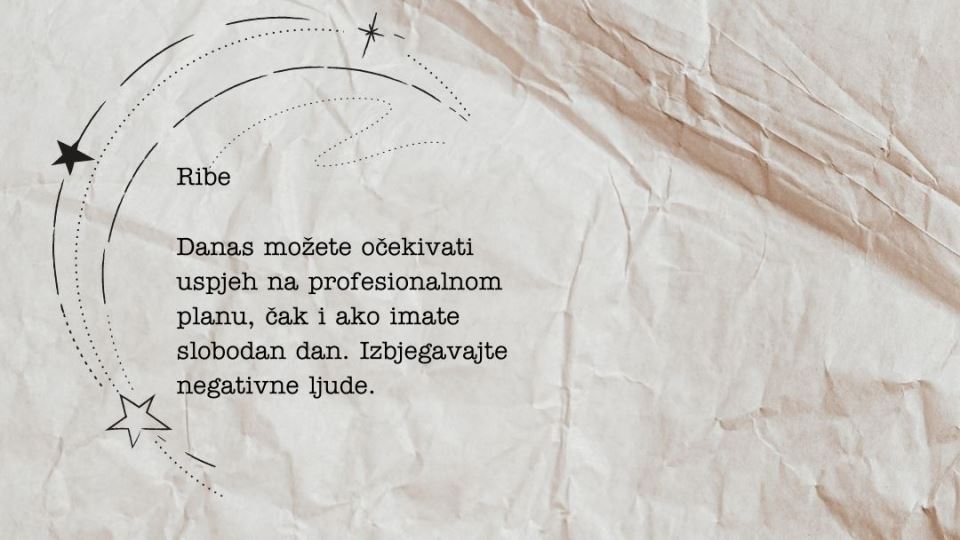 Ribe
Danas možete očekivati
uspjeh na profesionalnom
planu, čak i ako imate
slobodan dan. Izbjegavajte
negativne ljude.